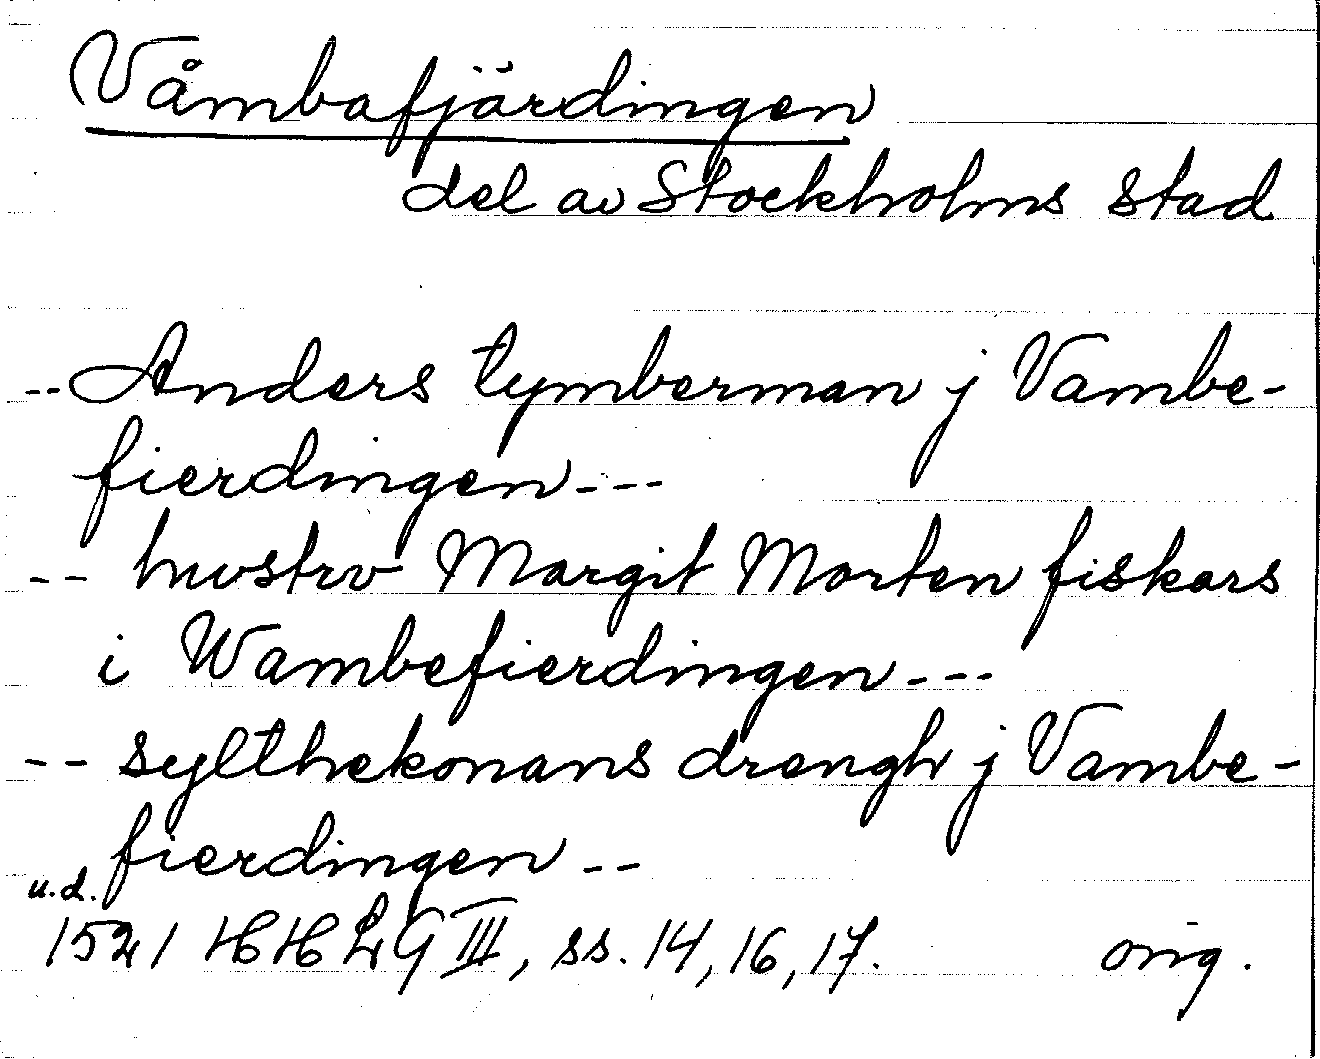 Våmbafjärdingen
del av Stockholms stad
-- Anders tymberman j Vambe-
fierdingen ---
-- hustrv Margit Morten fiskars
i Wambefierdingen ---
-- sylthekonans drengh j Vambe-
fierdingen --
u.d.
1521 HHLG III, ss. 14, 16, 17. orig.